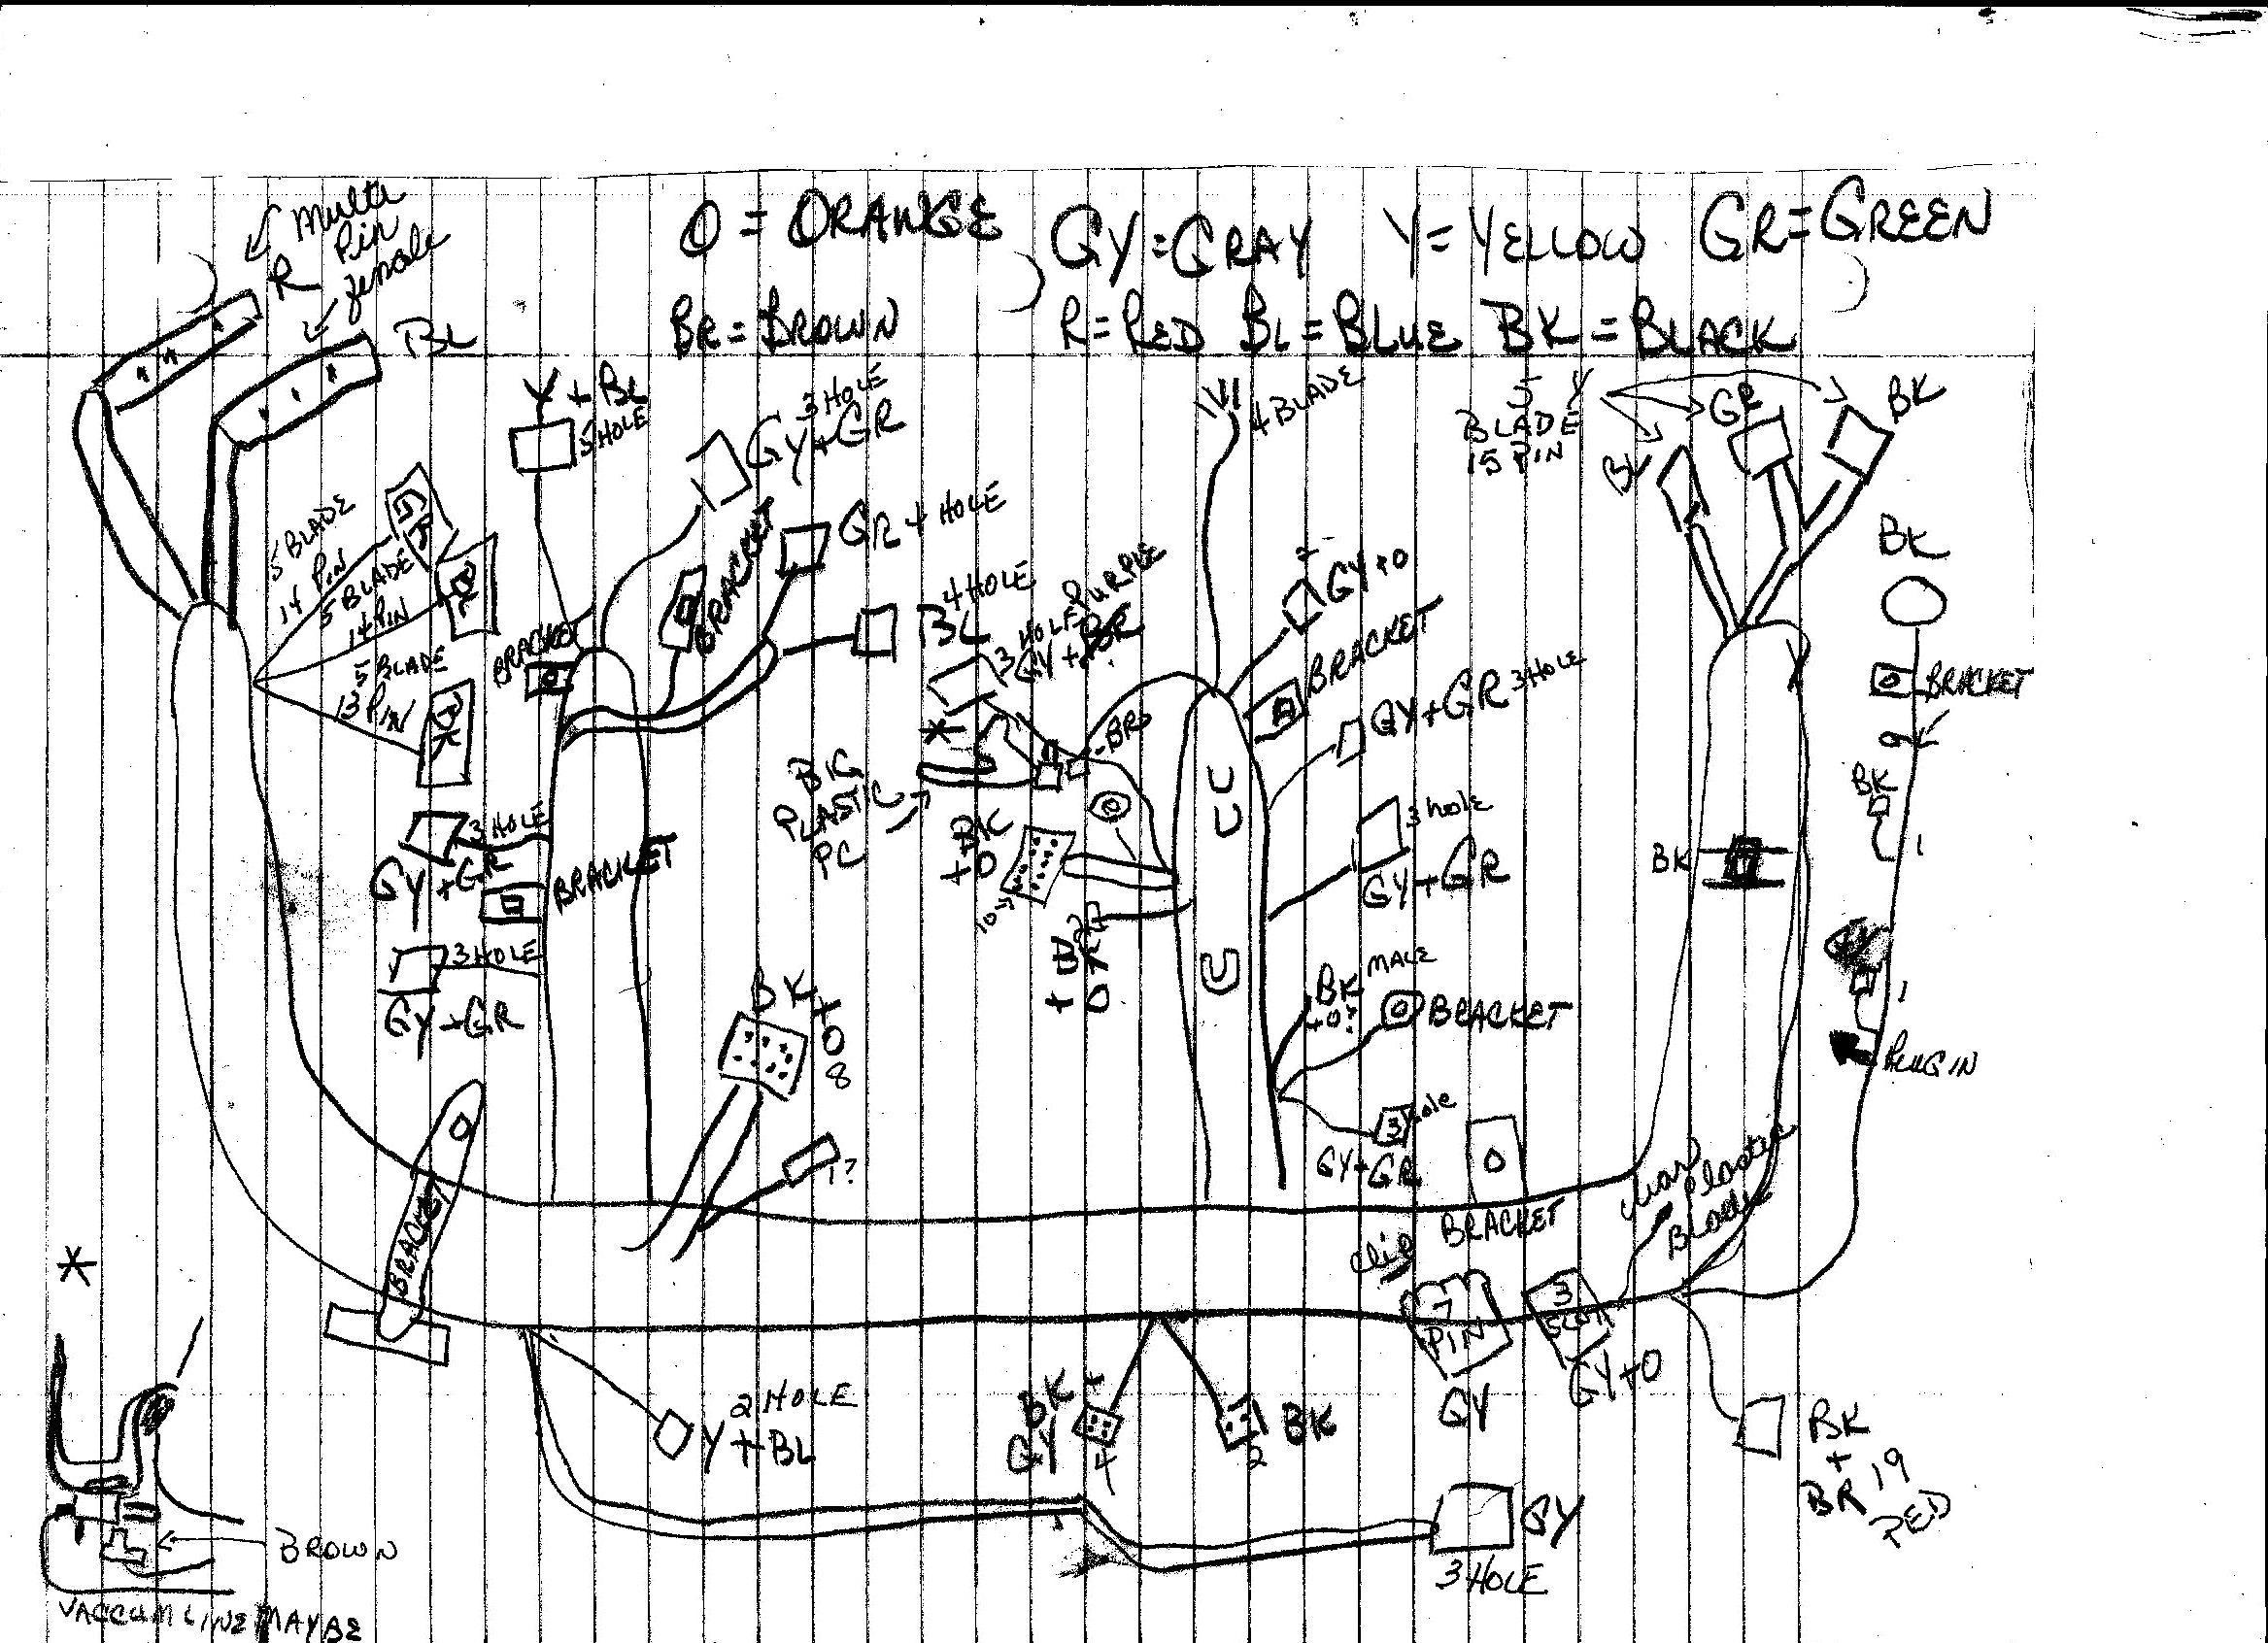 O = ORANGE
GY = GRAY
Y = YELLOW
GR = GREEN
BR = BROWN
R = RED
BL = BLUE
BK = BLACK
Multi
Pin
female
R
BL
Y + BL
5 HOLE
3 HOLE
GY + GR
GR 4 HOLE
BRACKET
4 HOLE
BL
5 BLADE
14 PIN
GR
5 BLADE
14 PIN
5 BLADE
13 PIN
BK
BRACKET
3 HOLE
GY + GR
BRACKET
3 HOLE
GY + GR
3 HOLE PURPLE
GY +
*
BIG
PLASTIC
PC
BK
+ O
10
4 BLADE
GY + O
BRACKET
GY + GR 3 HOLE
3 hole
GY + GR
BK MALE
+ O ?
BRACKET
3 hole
GY + GR
BRACKET
5
BLADE
15 PIN
Y
BK
GR
BK
BK
BRACKET
BK
1
BK
1
PLUG IN
BK +
O
8
1 ?
BRACKET
Plastic
Blade
Clip
7
PIN
GY
3
SLOT
GY + O
2 HOLE
Y + BL
BK +
GY
4
BK
2
BK
+
BR 19
RED
GY
3 HOLE
*
BROWN
VACCUM LINE MAYBE